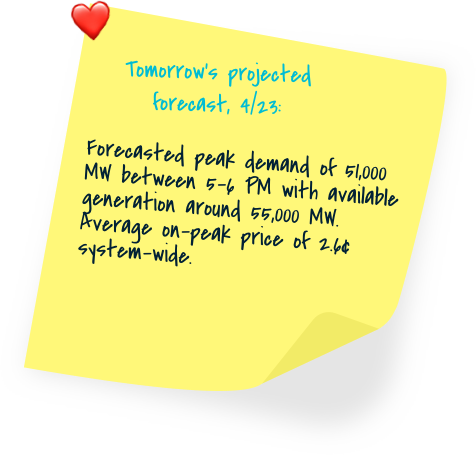 Tomorrow's projected
forecast, 4/23:
Forecasted peak demand of 51,000
MW between 5-6 PM with available
generation around 55,000 MW.
Average on-peak price of 2.6¢
system-wide.